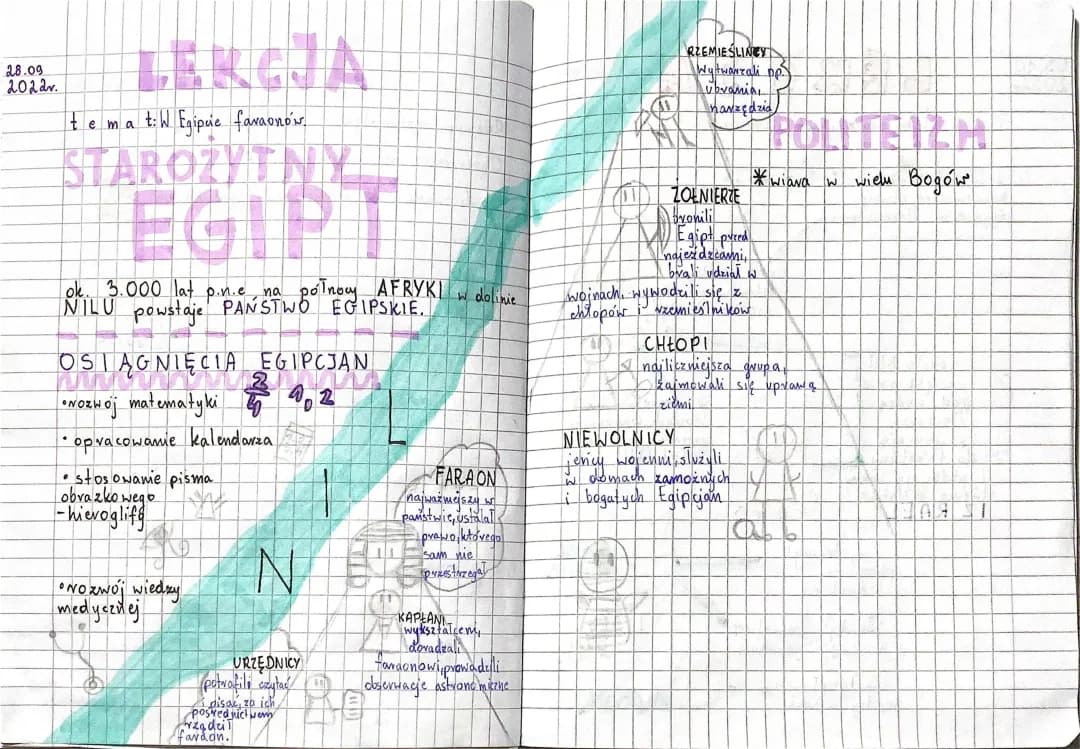 28.09
2022r.
LEKCJA
temat: W Egipcie faraonów.
STAROŻYTNY
EGIPT
ok. 3.000 lat p.n.e na północy AFRYKI w dolinie
NILU powstaje PAŃSTWO EGIPSKIE.
OSIĄGNIĘCIA EGIPCJAN
•rozwój matematyki 2/4 1,2
• opracowanie kalendarza
• stosowanie pisma
obrazkowego
-hieroglify
•rozwój wiedzy
medycznej
NIL
FARAON
najważniejszy w
państwie, ustalał
prawo, którego
sam nie
przestrzegał
KAPŁANI
wykształceni,
doradzali
faraonowi, prowadzili
obserwacje astronomiczne
URZĘDNICY
potrafili czytać
i pisać, za ich
pośrednictwem
rządził
faraon.
RZEMIEŚLNICY
Wytwarzali np.
ubrania,
narzędzia
ŻOŁNIERZE
bronili
Egipt przed
najeźdzcami,
brali udział w
wojnach, wywodzili się z
chłopów i rzemieślników
CHŁOPI
najliczniejsza grupa,
zajmowali się uprawą
ziemi
NIEWOLNICY
jeńcy wojenni, służyli
w domach zamożnych
i bogatych Egipcjan
POLITEIZM
*wiara w wielu Bogów